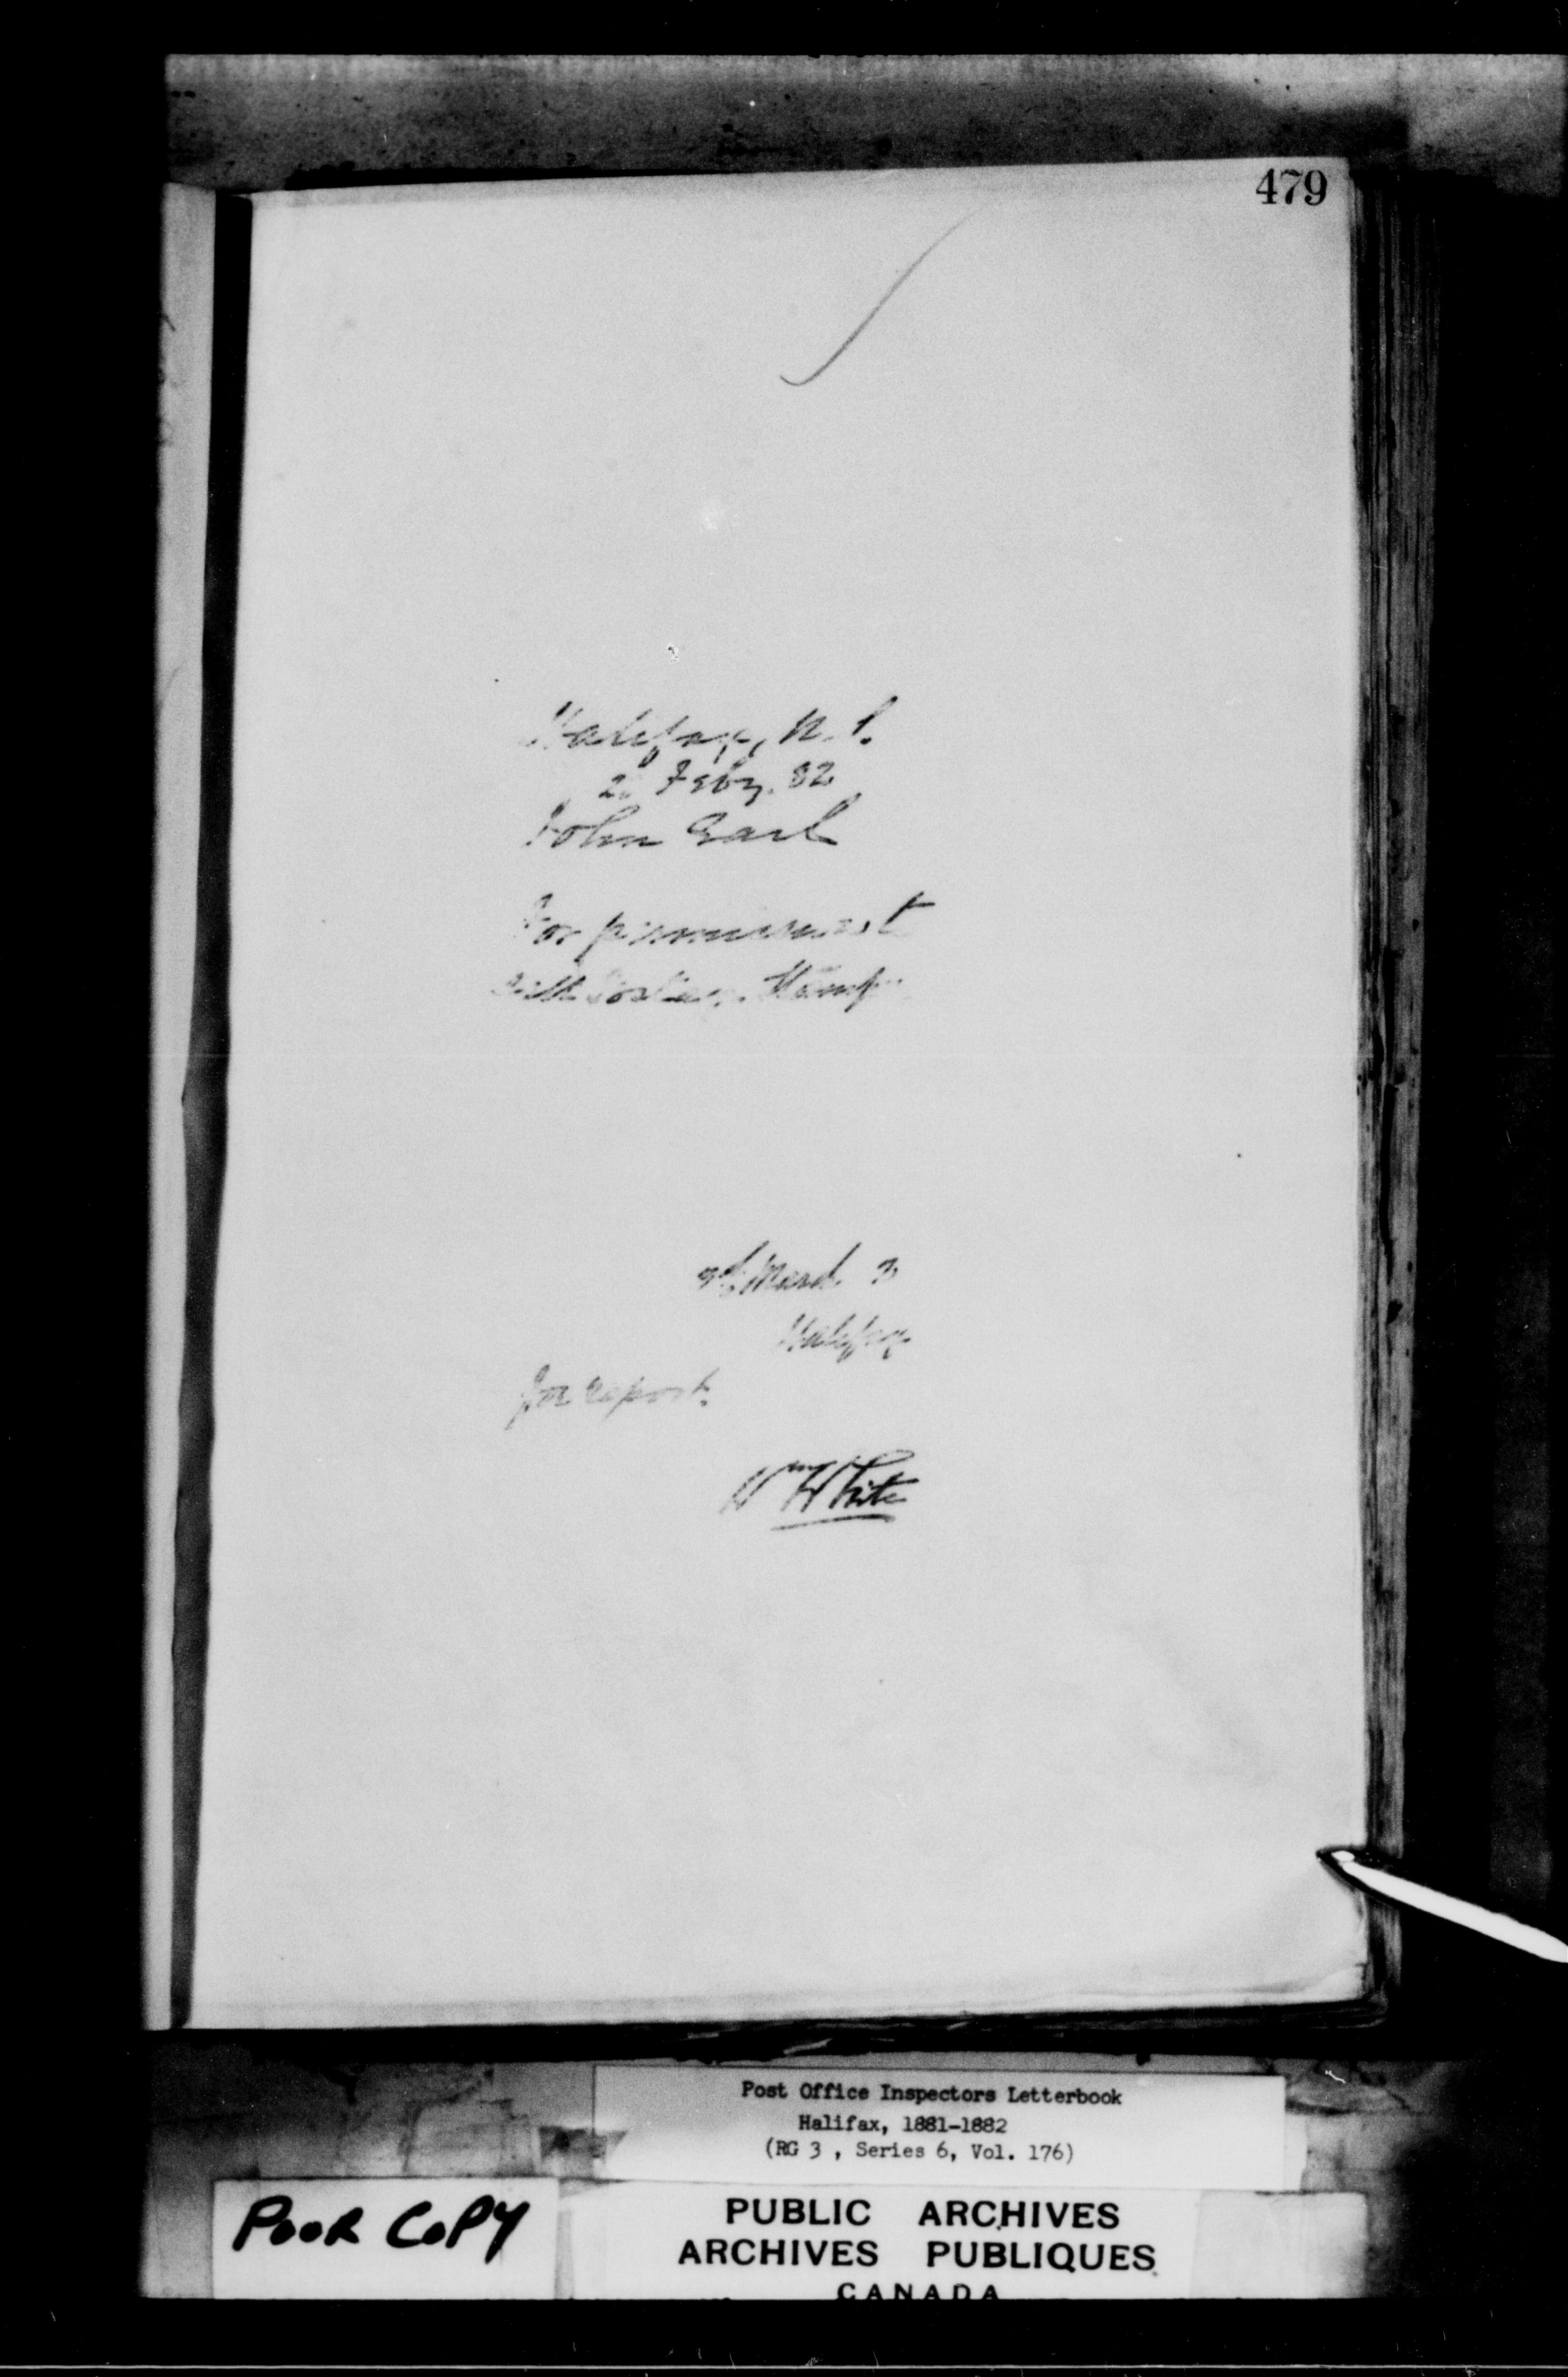 479
Halifax, N.S.
2 Feby. 82
John Earl
For
Postage Stamps
March 3
Halifax
for report.
Wm White
Post Office Inspectors Letterbook
Halifax, 1881-1882
(RG 3 , Series 6, Vol. 176)
POOR COPY
PUBLIC ARCHIVES
ARCHIVES PUBLIQUES
CANADA